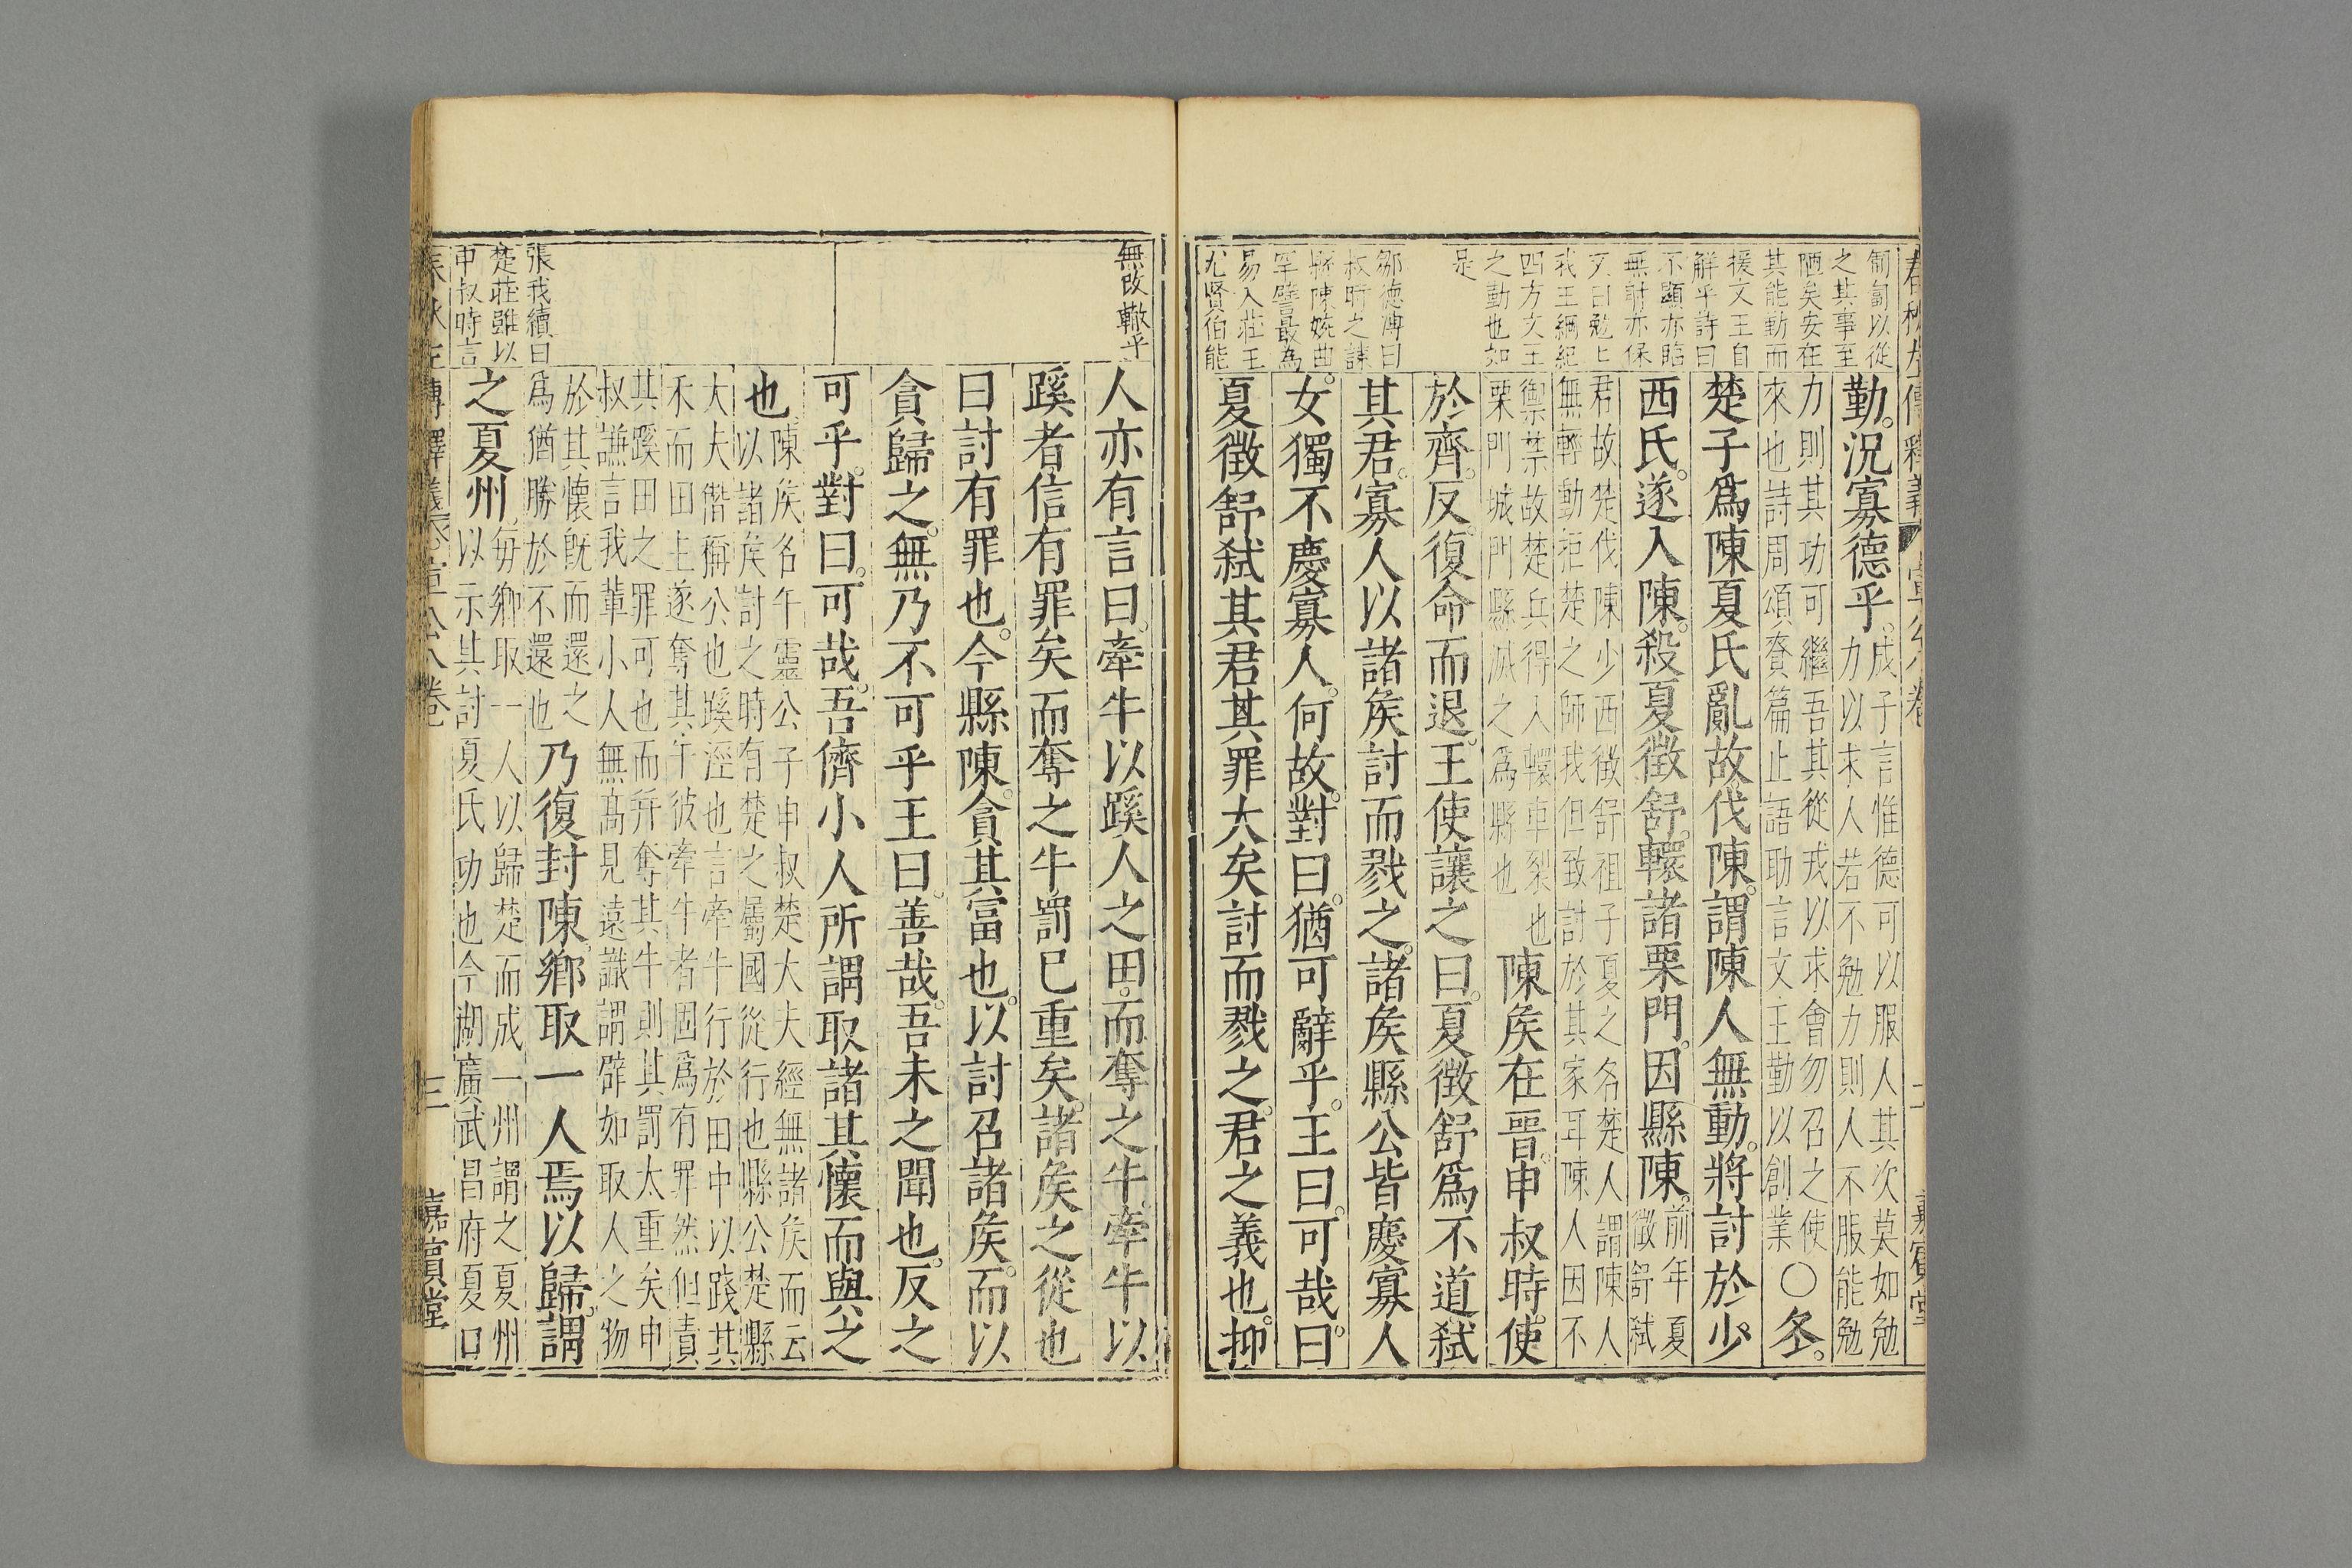 春秋左傳釋義
嘉賓堂
之其事至
陋矣安在
其能勤而
援文王自
解乎詩曰
不顯亦臨
無射亦保
又曰勉上
我王綱紀
四方文王
之勤也如
是
鄒德溥曰
叔時之諫
縣陳婉曲
罕譬最為
易入莊王
尤賢伯能
勤況寡德乎
成子言惟德可以服人其次莫如勉
力以求人若不勉力則人不服能勉
力則其功可繼吾其從戎以求會勿召之使
來也詩周頌賚篇止語助言文王勤以創業
〇冬
楚子爲陳夏氏亂故伐陳謂陳人無動將討於少
西氏遂入陳殺夏徵舒轘諸栗門因縣陳
前年夏
徵舒弒
君故楚伐陳少西徵舒祖子夏之名楚人謂陳人
無輕動拒楚之師我但致討於其家耳陳人因不
禦禁故楚兵得入轘車裂也
栗門城門縣滅之爲縣也
陳矦在晉申叔時使
於齊反復命而退王使讓之曰夏徵舒爲不道弒
其君寡人以諸矦討而戮之諸矦縣公皆慶寡人
女獨不慶寡人何故對曰猶可辭乎王曰可哉曰
夏徵舒弒其君其罪大矣討而戮之君之義也抑
無改轍乎
人亦有言曰牽牛以蹊人之田而奪之牛牽牛以
蹊者信有罪矣而奪之牛罰已重矣諸矦之從也
曰討有罪也今縣陳貪其富也以討召諸矦而以
貪歸之無乃不可乎王曰善哉吾未之聞也反之
可乎對曰可哉吾儕小人所謂取諸其懷而與之
也
陳矦名午靈公子申叔楚大夫經無諸矦而云
以諸矦討之時有楚之屬國從行也縣公楚縣
大夫僭稱公也蹊涇也言牽牛行於田中以踐其
禾而田主遂奪其牛彼牽牛者固爲有罪然但責
其蹊田之罪可也而并奪其牛則其罰太重矣申
叔謙言我輩小人無高見遠識謂辟如取人之物
於其懷旣而還之
爲猶勝於不還也
乃復封陳鄉取一人焉以歸謂
張我續曰
楚莊雖以
申叔時言
之夏州
每鄉取一人以歸楚而成一州謂之夏州
以示其討夏氏功也今湖廣武昌府夏口
春秋左傳釋義
宣公八卷
三
嘉賓堂